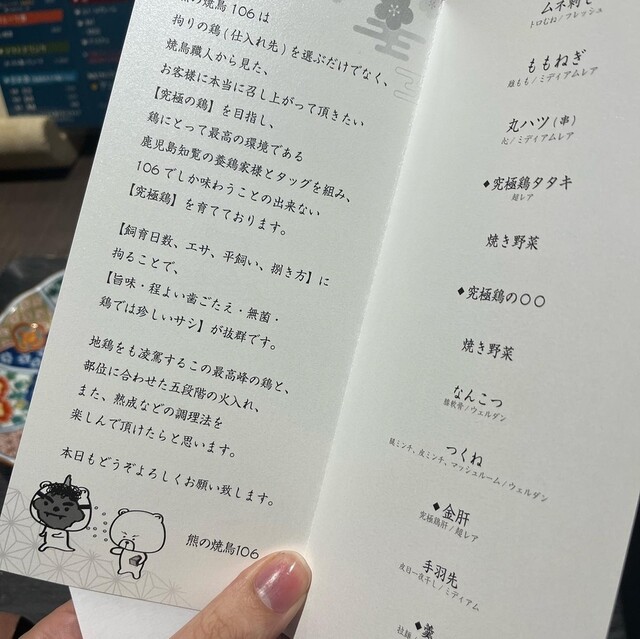 熊の焼鳥106は
拘りの鶏(仕入れ先)を選ぶだけでなく、
焼鳥職人から見た、
お客様に本当に召し上がって頂きたい
【究極の鶏】を目指し、
鶏にとって最高の環境である
鹿児島知覧の養鶏家様とタッグを組み、
106でしか味わうことの出来ない
【究極鶏】を育てております。
【飼育日数、エサ、平飼い、捌き方】に
拘ることで、
【旨味・程よい歯ごたえ・無菌・
鶏では珍しいサシ】が抜群です。
地鶏をも凌駕するこの最高峰の鶏と、
部位に合わせた五段階の火入れ、
また、熟成などの調理法を
楽しんで頂けたらと思います。
本日もどうぞよろしくお願い致します。
熊の焼鳥106
ムネ刺し
トロむね/フレッシュ
ももねぎ
雌もも/ミディアムレア
丸ハツ(串)
心/ミディアムレア
◆究極鶏タタキ
超レア
焼き野菜
◆究極鶏の〇〇
焼き野菜
なんこつ
膝軟骨/ウェルダン
つくね
鶏ミンチ、皮ミンチ、マッシュルーム/ウェルダン
◆金肝
究極鶏肝/超レア
手羽先
皮目一夜干し/ミディアム
◆羹